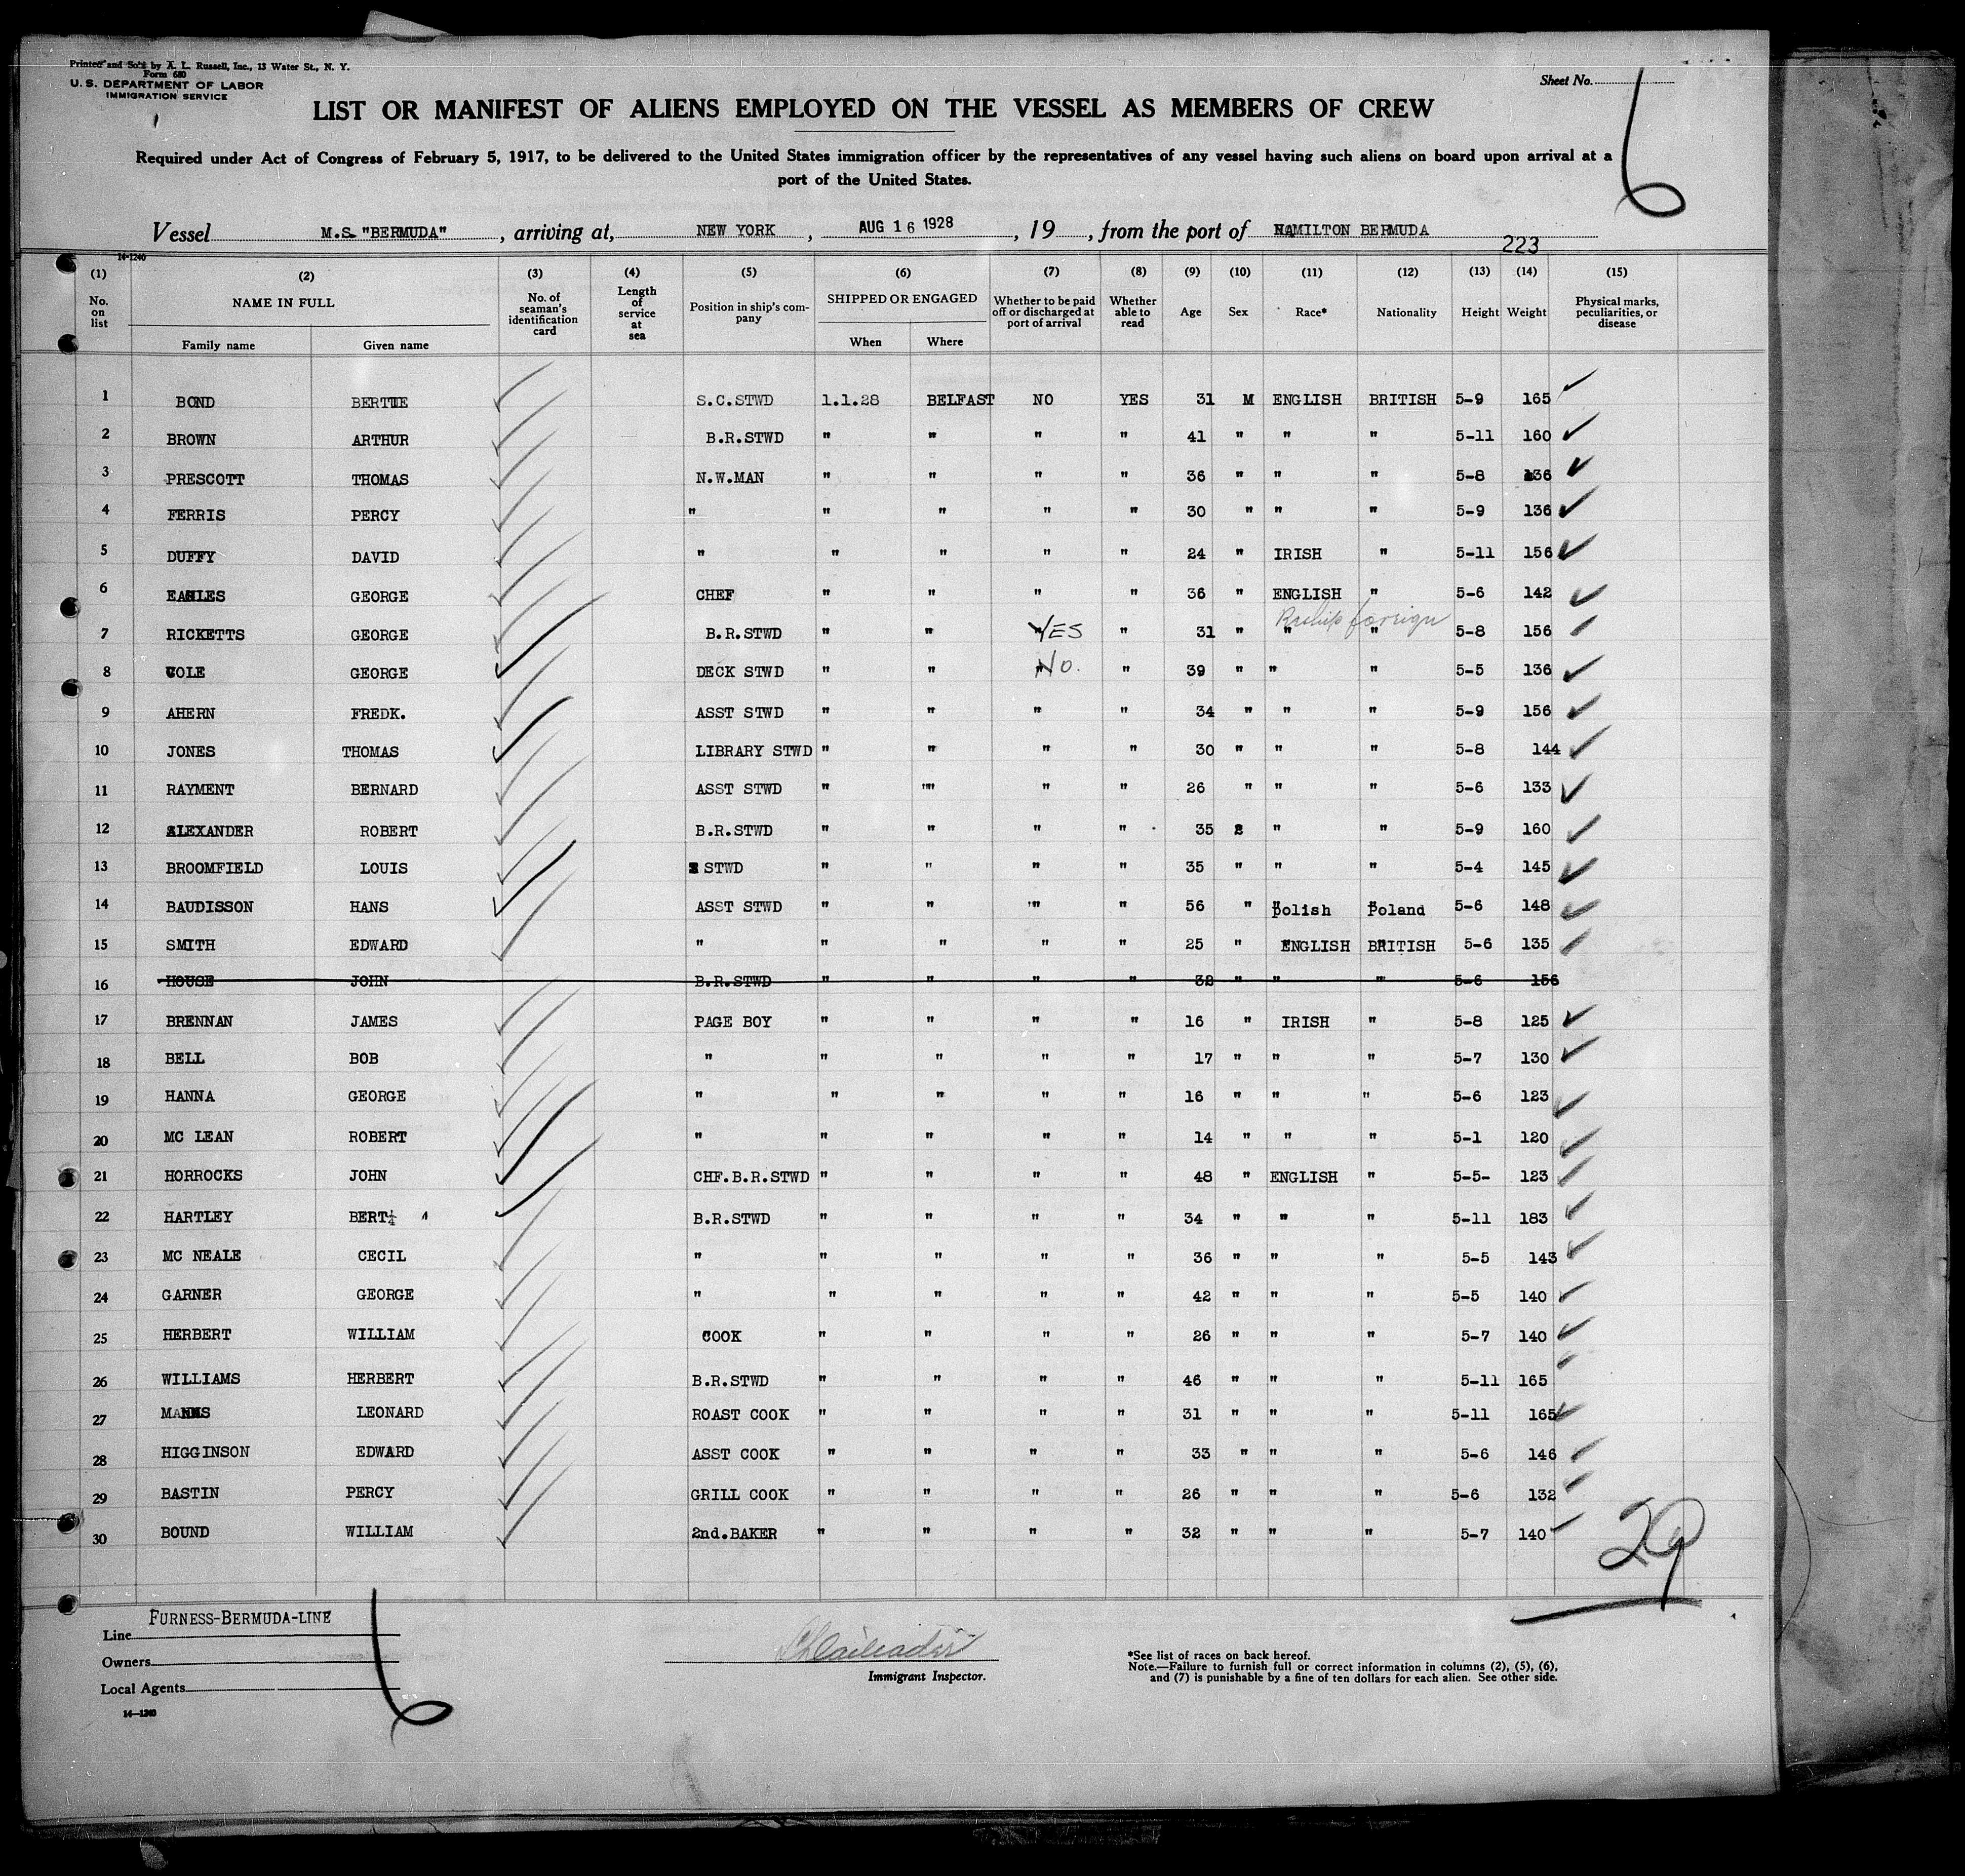 Printed and Sold by A. L. Russell, Inc., 13 Water St., N. Y.
Form 680
U. S. DEPARTMENT OF LABOR
IMMIGRATION SERVICE
Sheet No. 6
LIST OR MANIFEST OF ALIENS EMPLOYED ON THE VESSEL AS MEMBERS OF CREW
Required under Act of Congress of February 5, 1917, to be delivered to the United States immigration officer by the representatives of any vessel having such aliens on board upon arrival at a
port of the United States.
Vessel M.S. "BERMUDA", arriving at, NEW YORK, AUG 16 1928, 19 , from the port of HAMILTON BERMUDA
223
14-1240
(1) (2) (3) (4) (5) (6) (7) (8) (9) (10) (11) (12) (13) (14) (15)
No. on list NAME IN FULL Family name Given name No. of seaman's identification card Length of service at sea Position in ship's company SHIPPED OR ENGAGED When Where Whether to be paid off or discharged at port of arrival Whether able to read Age Sex Race* Nationality Height Weight Physical marks, peculiarities, or disease
1 BOND BERTIE S.C.STWD 1.1.28 BELFAST NO YES 31 M ENGLISH BRITISH 5-9 165
2 BROWN ARTHUR B.R.STWD " " " " 41 " " " 5-11 160
3 PRESCOTT THOMAS N.W.MAN " " " " 36 " " " 5-8 136
4 FERRIS PERCY " " " " " 30 " " " 5-9 136
5 DUFFY DAVID " " " " " 24 " IRISH " 5-11 156
6 GEORGE CHEF " " " " 36 " ENGLISH " 5-6 142
foreign
7 RICKETTS GEORGE B.R.STWD " " YES " 31 " " " 5-8 156
8 COLE GEORGE DECK STWD " " No. " 39 " " " 5-5 136
9 AHERN FREDK. ASST STWD " " " " 34 " " " 5-9 156
10 JONES THOMAS LIBRARY STWD " " " " 30 " " " 5-8 144
11 RAYMENT BERNARD ASST STWD " "" " " 26 " " " 5-6 133
12 ALEXANDER ROBERT B.R.STWD " " " " 35 " " 5-9 160
13 BROOMFIELD LOUIS STWD " " " " 35 " " " 5-4 145
14 BAUDISSON HANS ASST STWD " " " " 56 " polish Poland 5-6 148
15 SMITH EDWARD " " " " " 25 " ENGLISH BRITISH 5-6 135
16 HOUSE JOHN B.R.STWD " " " " 32 " " " 5-6 156
17 BRENNAN JAMES PAGE BOY " " " " 16 " IRISH " 5-8 125
18 BELL BOB " " " " " 17 " " " 5-7 130
19 HANNA GEORGE " " " " " 16 " " " 5-6 123
20 MC LEAN ROBERT " " " " " 14 " " " 5-1 120
21 HORROCKS JOHN CHF.B.R.STWD " " " " 48 " ENGLISH " 5-5- 123
22 HARTLEY BERT B.R.STWD " " " " 34 " " " 5-11 183
23 MC NEALE CECIL " " " " " 36 " " " 5-5 143
24 GARNER GEORGE " " " " " 42 " " " 5-5 140
25 HERBERT WILLIAM COOK " " " " 26 " " " 5-7 140
26 WILLIAMS HERBERT B.R.STWD " " " " 46 " " " 5-11 165
27 LEONARD ROAST COOK " " " " 31 " " " 5-11 165
28 HIGGINSON EDWARD ASST COOK " " " " 33 " " " 5-6 146
29 BASTIN PERCY GRILL COOK " " " " 26 " " " 5-6 132
30 BOUND WILLIAM 2nd.BAKER " " " " 32 " " " 5-7 140
29
Line FURNESS-BERMUDA-LINE
Owners
Local Agents
14—1240
6
Immigrant Inspector.
*See list of races on back hereof.
Note.—Failure to furnish full or correct information in columns (2), (5), (6),
and (7) is punishable by a fine of ten dollars for each alien. See other side.